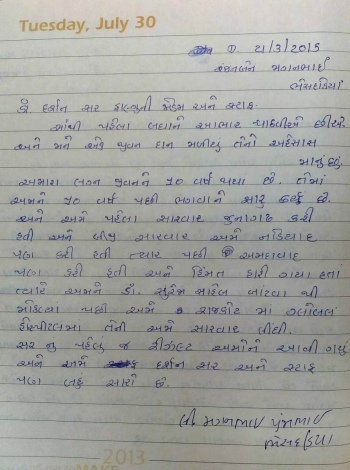 Tuesday, July 30
તા. 21/3/2015
કંચનબેન મગનભાઈ
ભેસદડિયા
ડૉ. દર્શન સર ફાલ્ગુની મેડમ અને સ્ટાફ.
સૌથી પહેલા બધાનો આભાર પાઠવીએ છીએ.
અને મને એક જીવન દાન મળીયું તેનો અહેસાસ
માનું છું.
અમારા લગ્ન જીવનને ૧૦ વર્ષ થયા છે. તેમાં
અમને ૧૦ વર્ષ પછી ભગવાને સારું કર્યું છે.
અને અમે પહેલા સારવાર જુનાગઢ કરી
હતી અને બીજી સારવાર અમે નડિયાદ
પણ કરી હતી ત્યાર પછી અમદાવાદ
પણ કરી હતી અને હિંમત હારી ગયા હતાં
ત્યારે અમને ડૉ. સુરેશ સાહેબ બાંટવા થી
મોકલ્યા પછી અમે રાજકોટ માં ગોકુલ
હોસ્પીટલમાં તેની અમે સારવાર લીધી.
સર નુ પહેલું જ રીઝલ્ટ અમોને આવી ગયું
અને અમે દર્શન સર અને સ્ટાફ
પણ બહુ સારો છે.
લી મગનભાઈ પુંજાભાઈ
ભેસદડિયા
2013